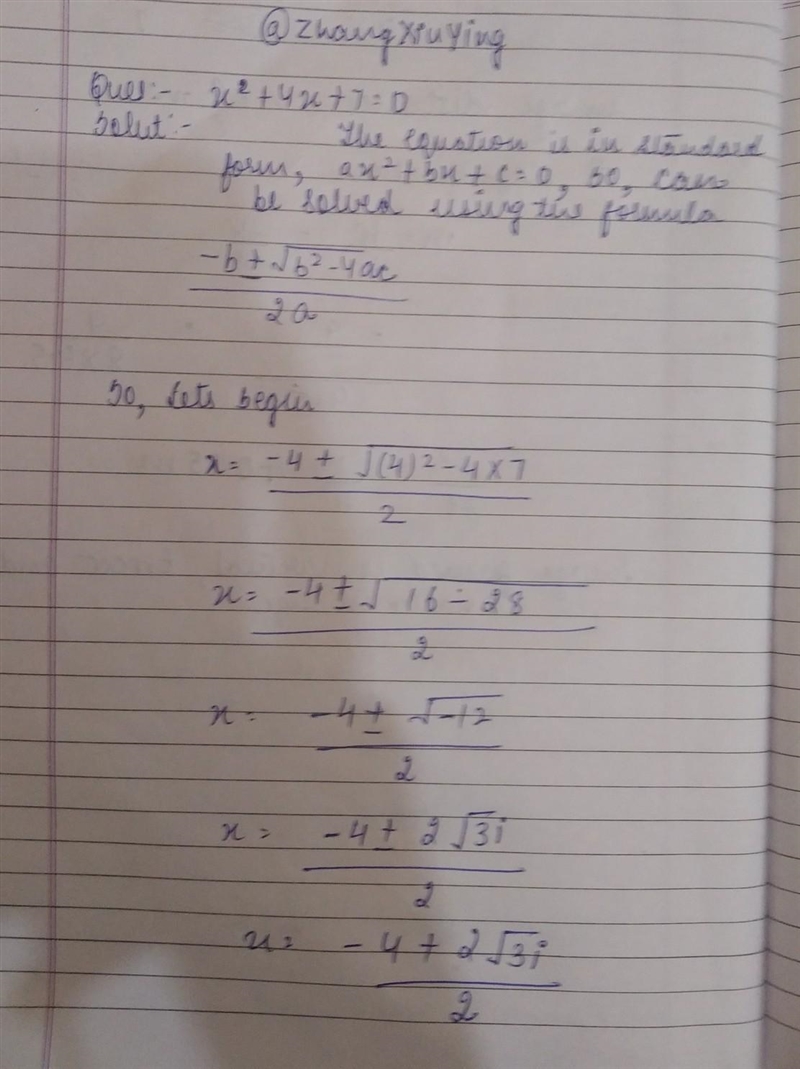 @ZhangXiuYing
Ques:- x² + 4x + 7 = 0
Solut:- The equation is in standard
form, ax² + bx + c = 0, so, can
be solved using the formula
-b ± √b² - 4ac
2a
So, Lets begin
x = -4 ± √(4)² - 4 × 7
2
x = -4 ± √16 - 28
2
x = -4 ± √-12
2
x = -4 ± 2√3i
2
x = -4 + 2√3i
2